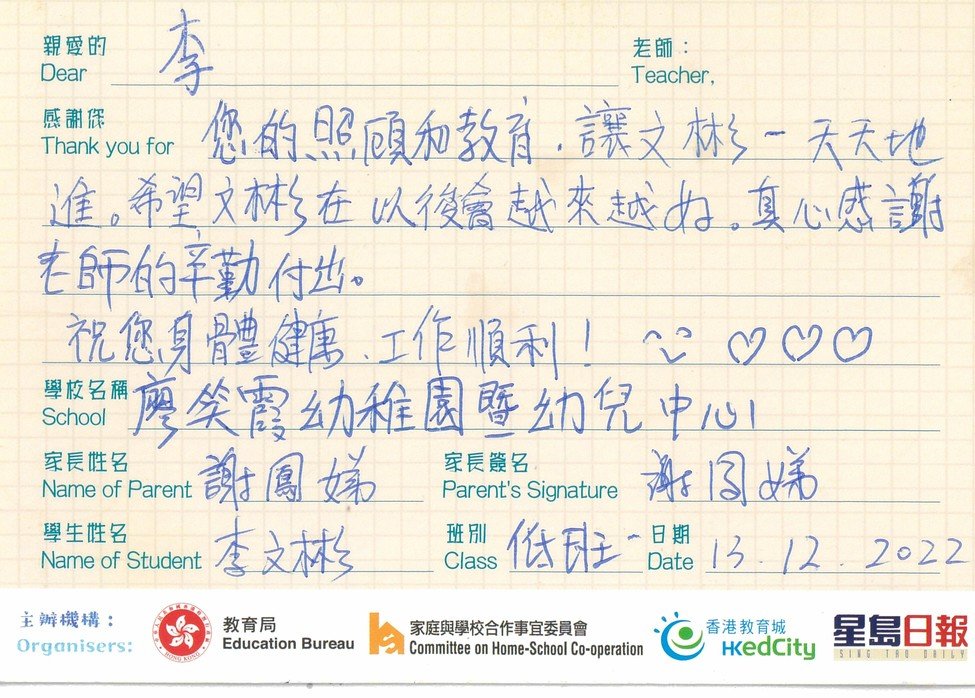 親愛的 李 老師：
Dear Teacher,
感謝您 您的照顧和教育，讓文彬一天天地
Thank you for
進。希望文彬在以後會越來越好。真心感謝
老師的辛勤付出。
祝您身體健康、工作順利！
學校名稱 廖笑霞幼稚園暨幼兒中心
School
家長姓名 謝鳳娣 家長簽名 謝鳳娣
Name of Parent Parent's Signature
學生姓名 李文彬 班別 低班 日期 13.12.2022
Name of Student Class Date
主辦機構： 教育局 家庭與學校合作事宜委員會 香港教育城 星島日報
Organisers: Education Bureau Committee on Home-School Co-operation HKedCity SING TAO DAILY